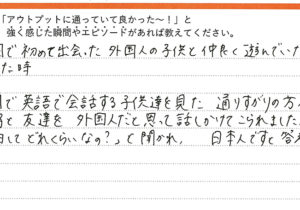 「アウトプットに通っていて良かった〜！」と
強く感じた瞬間やエピソードがあれば教えてください。
で初めて出会った外国人の子供と仲良く遊んでいた
た時
で英語で会話する子供達を見た 通りすがりの方
友達を外国人だと思って話しかけてこられました
してどれくらいなの？」と聞かれ、 日本人ですと答